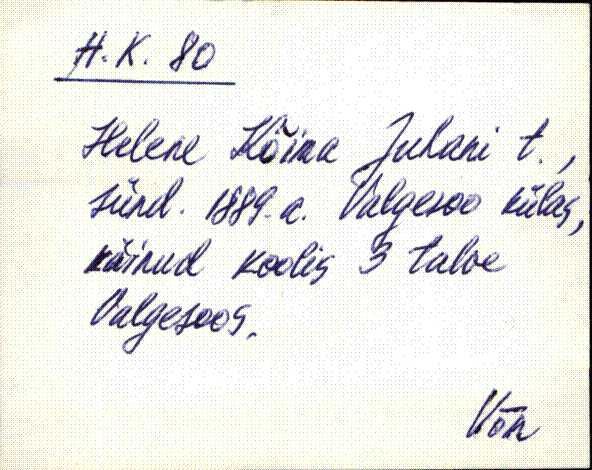 H.K. 80
Helene Kõima Juhani t.,
sünd. 1889. a. Valgesoo külas,
käinud koolis 3 talve
Valgesoos.
Võn